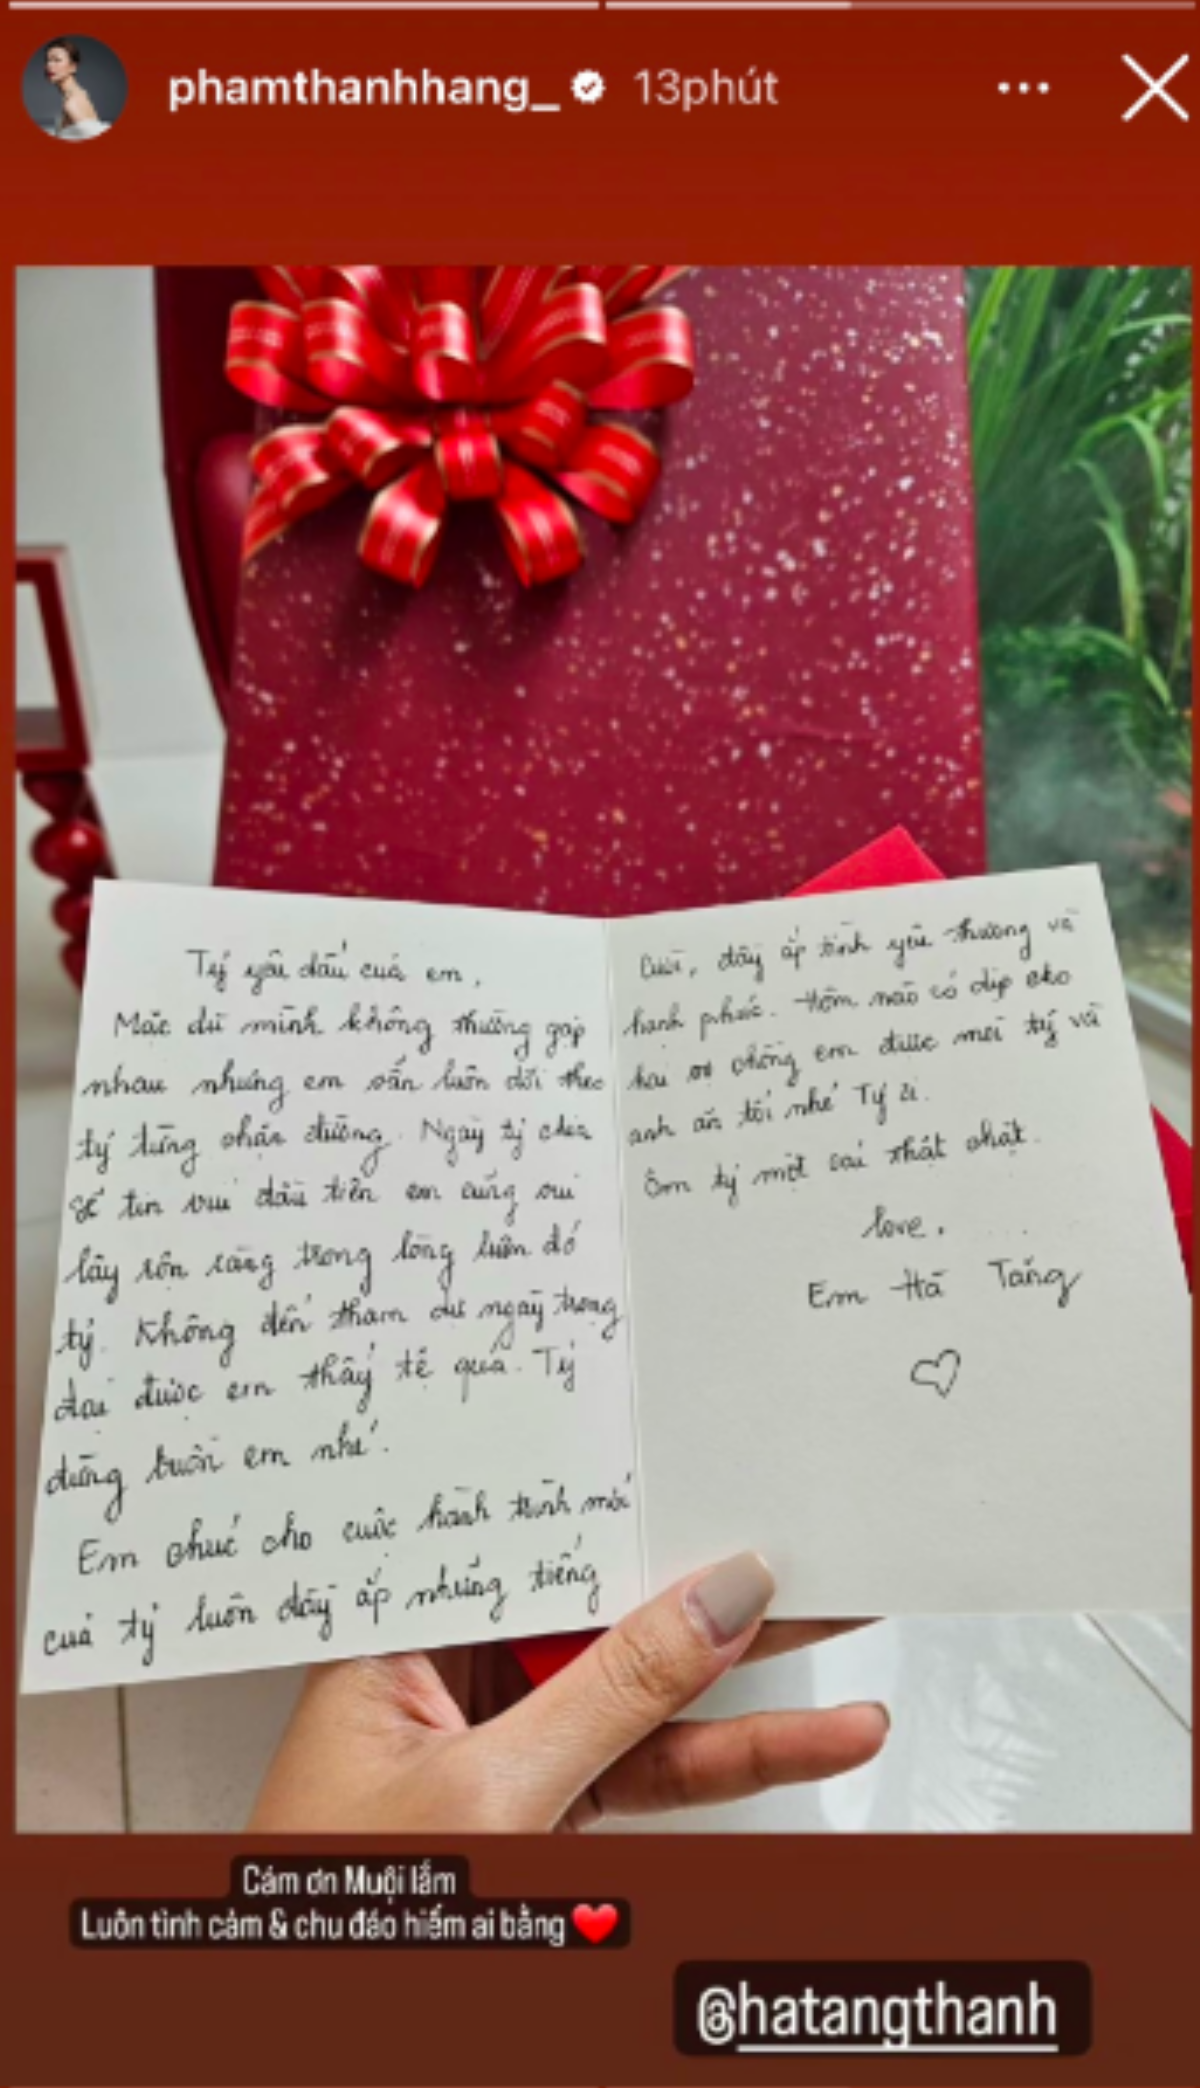 phamthanhhang_ 13phút
Tỷ yêu dấu của em,
Mặc dù mình không thường gặp
nhau nhưng em vẫn luôn dõi theo
tỷ từng chặn đường. Ngày tỷ chia
sẻ tin vui đầu tiên em cũng vui
lây rộn ràng trong lòng luôn đó
tỷ. Không đến tham dự ngày trọng
đại được em thấy tệ quá. Tỷ
đừng buồn em nhé.
Em chúc cho cuộc hành trình mới
của tỷ luôn đầy ắp những tiếng
cười, đầy ắp tình yêu thương và
hạnh phúc. Hôm nào có dịp cho
hai vợ chồng em được mời tỷ và
anh ăn tối nhé Tỷ ơi.
Ôm tỷ một cái thật chặt.
love.
Em Hà Tăng
Cám ơn Muội lắm
Luôn tình cảm & chu đáo hiếm ai bằng ❤️
@hatangthanh